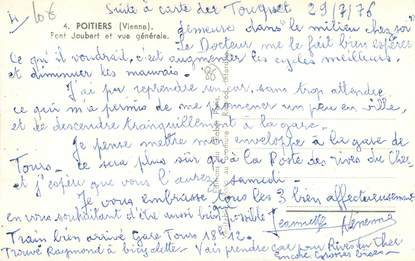 Suite à carte du Touquet 29/7/76
4. POITIERS (Vienne).
Pont Joubert et vue générale.
demeure dans le milieu chez soi
Le Docteur me le fait bien espérer
Ce qu'il voudrait, c'est augmenter les cycles meilleurs
et diminuer les mauvais.
J'ai pu reprendre un car, sans trop attendre
ce qui m'a permis de me promener un peu en ville,
et de descendre tranquillement à la gare.
Je pense mettre mon enveloppe à la gare de
Tours - ce sera plus sûr qu'à la Poste des rives du Cher
et j'espère que vous l'aurez samedi -
Je vous embrasse tous les 3 bien affectueusement
en vous souhaitant d'être aussi bien que possible
Jeannette
Train bien arrivé Gare Tours 18h12.
Trouvé Raymond à bicyclette - Vais prendre car pour Rives du Cher
Encore bien